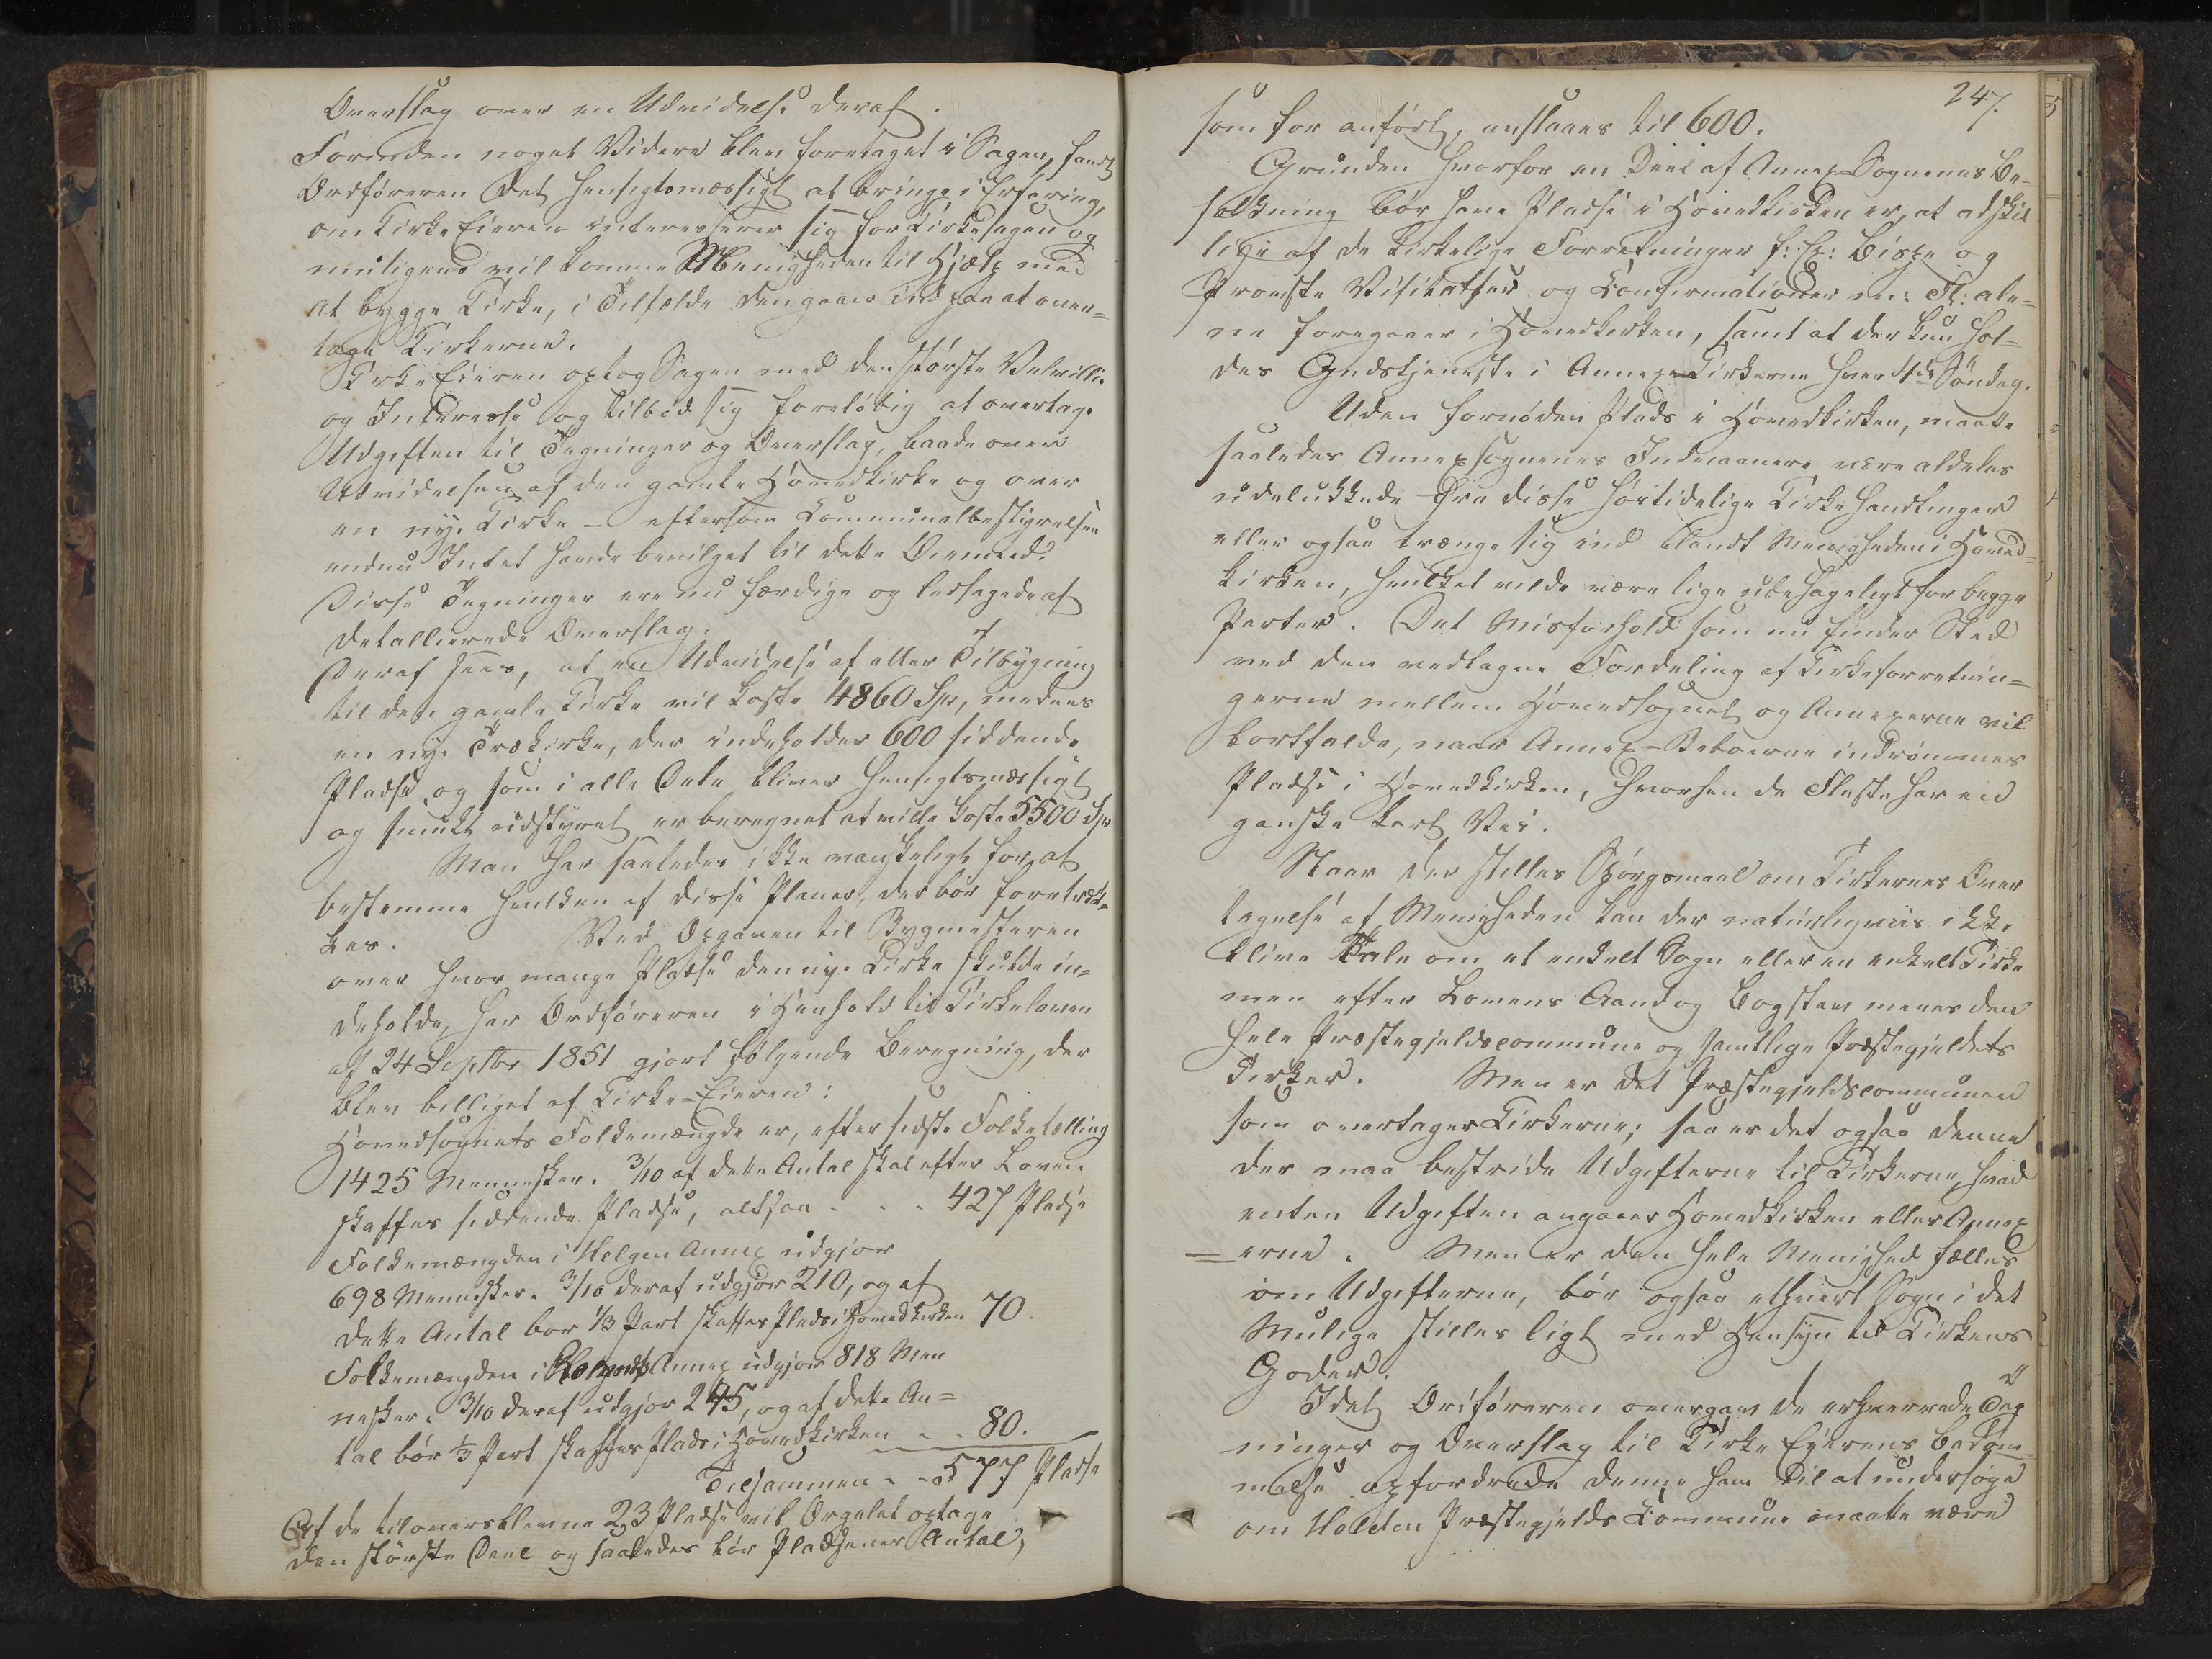 Overslag over en Udvidelse deraf.
Forinden noget Videre blev foretaget i Sagen, fandt
Ordføreren det hensigtsmæssigt at bringe i Erfaring,
om Kirke Eieren interesserer sig for Kirkesagen og
muligens vil komme Menigheden til Hjælp med
at bygge Kirke, i Tilfælde den gaaer ind paa at over-
tage Kirkerne.
Kirke Eieren optog Sagen med den største Velvillie
og Interesse og tilbød sig foreløbig at overtage
Udgiften til Tegninger og Overslag, baade over
Udvidelsen af den gamle Hovedkirke og over
en ny Kirke - eftersom Communalbestyrelsen
endnu Intet havde bevilget til dette Øiemeed.
Disse Tegninger ere nu færdige og ledsagede af
detallierede Overslag.
Deraf sees, at en Udvidelse af eller Tilbygning
til den gamle Kirke vil koste 4860 Spd, medens
en ny Trækirke, der indeholder 600 siddende
Pladse og som i alle Dele bliver hensigtsmæssigt
og smukt udstyret er beregnet at ville koste 5500 Spd
Man har saaledes ikke vanskeligt for at
bestemme hvilken af disse Planer, der bør foretræk-
kes. Ved Opgaven til Bygmesteren
over hvor mange Pladse den nye Kirke skulde in-
deholde, har Ordføreren i Henhold til Kirkeloven
af 24 Septbr 1851 gjort følgende Beregning, der
blev billiget af Kirke-Eieren:
Hovedsognets Folkemængde er, efter sidste Folketælling
1425 Mennesker. 3/10 af dette Antal skal efter Loven
skaffes siddende Pladse, altsaa - - - 427 Pladse
Folkemængden i Helgen Annex udgjør
698 Mennesker. 3/10 deraf udgjør 210, og af
dette Antal bør 1/3 Part skaffes Plads i Hovedkirken 70.
Folkemængden i Annex udgjør 818 Men
nesker. 3/10 deraf udgjør 245, og af dette An-
tal bør 1/3 Part skaffes Plads i Hovedkirken - - 80.
Tilsammen - - 577 Pladse
Af de tiloversblevne 23 Pladse vil Orgelet optage
den største Deel og saaledes bør Pladsenes Antal,
247.
som før anført, anslaaes til 600.
Grunden hvorfor en Deel af Annex-Sognenes Be-
folkning bør have Pladse i Hovedkirken er, at adskil
lige af de kirkelige Forretninger f: Ex: Bispe og
Provste Visitatser og Confirmationer m: Fl: ale-
ne foregaaer i Hovedkirken, samt at der kun hol-
des Gudstjeneste i Annex-Kirkerne hver 4de Søndag.
Uden fornøden Plads i Hovedkirken, maatte
saaledes Annexsognenes Indvaanere være aldeles
udelukkede fra disse høitidelige Kirkehandlinger
eller ogsaa trænge sig ind blandt Menigheden i Hoved-
kirken, hvilket vilde være lige ubehageligt for begge
Parter. Det Misforhold som nu finder Sted
ved den vedtagne Fordeling af Kirkeforretnin-
gerne mellem Hovedsognet og Annexerne vil
bortfalde, naar Annex-Beboerne indrømmes
Pladse i Hovedkirken, hvorhen de Fleste har en
ganske kort Vei.
Naar der stilles Spørgsmaal om Kirkernes Over
tagelse af Menigheden kan der naturligviis ikke
blive Tale om et enkelt Sogn eller en enkelt Kirke
men efter Lovens Aand og Bogstav menes den
hele Præstegjeldscommune og samtlige Præstegjeldets
Kirker. Men er det Præstegjeldscommunen
som overtager Kirkerne; saa er det ogsaa denne
der maa bestride Udgifterne til Kirkerne, hvad
enten Udgiften angaaer Hovedkirken eller Annex
=erne. Men er den hele Menighed fælles
om Udgifterne, bør ogsaa ethvert Sogn i det
Mulige stilles ligt med Hensyn til Kirkens
Goder.
Idet Ordføreren overgav de erhvervede Teg
ninger og Overslag til Kirke Eierens Bedøm-
melse opfordrede denne ham til at undersøge
om Holden Præstegjelds Commune maatte være